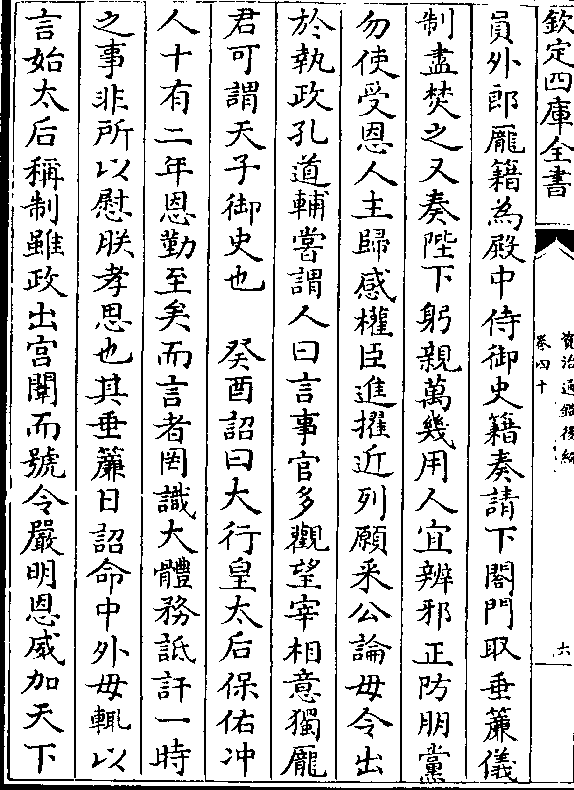 欽定四庫全書
資治通鑑後編
卷四十
六
員外郎龎籍為殿中侍御史籍奏請下閤門取垂簾儀
制盡焚之又奏陛下躬親萬幾用人宜辨邪正防朋黨
勿使受恩人主歸感權臣進擢近列願采公論毋令出
於執政孔道輔嘗謂人曰言事官多觀望宰相意獨龎
君可謂天子御史也　癸酉詔曰大行皇太后保佑冲
人十有二年恩勤至矣而言者罔識大體務詆訐一時
之事非所以慰朕孝思也其垂簾日詔命中外毋輒以
言始太后稱制雖政出宫闈而號令嚴明恩威加天下